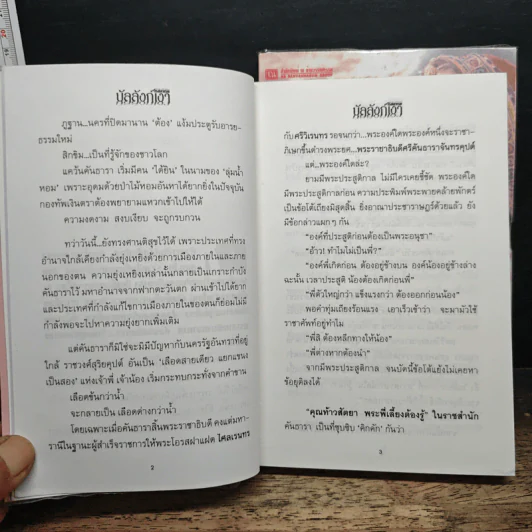 มัลลิกาโยว
ภูฐาน...นครที่ปิดมานาน ‘ต้อง’ แง้มประตูรับอารย-
ธรรมใหม่
สิกขิม...เป็นที่รู้จักของชาวโลก
แคว้นคันธารา เริ่มมีคน ‘ได้ยิน’ ในนามของ ‘ลุ่มน้ำ
หอม’ เพราะอุดมด้วยป่าไม้หอมอันหาได้ยากยิ่งในปัจจุบัน
กองทัพเงินตราต้องพยายามแหวกเข้าไปให้ได้
ความงดงาม สงบเงียบ จะถูกรบกวน
ทว่าวันนี้...ยังทรงศานติสุขไว้ได้ เพราะประเทศที่ทรง
อำนาจใกล้เคียงกำลังยุ่งเหยิงด้วยการเมืองภายในและภาย
นอกของตน ความยุ่งเหยิงเหล่านั้นกลายเป็นเกราะกำบัง
คันธาราไว้ มหาอำนาจจากฟากตะวันตก ผ่านเข้าไปได้ยาก
และประเทศที่กำลังแก้ไขการเมืองภายในของตนก็ย่อมไม่มี
กำลังพอจะไปหาความยุ่งยากเพิ่มเติม
แต่คันธาราก็มิใช่จะมิมีปัญหากับนครรัฐอันทราที่อยู่
ใกล้ ราชวงศ์สุริยคุปต์ อันเป็น ‘เลือดสายเดียว แยกแขนง
เป็นสอง’ แห่งเจ้าพี่ เจ้าน้อง เริ่มกระทบกระทั่งจากคำขาน
เลือดข้นกว่าน้ำ
จะกลายเป็น เลือดต่างกว่าน้ำ
โดยเฉพาะเมื่อคันธาราสิ้นพระราชาธิบดี คงแต่มหา-
รานีในฐานะผู้สำเร็จราชการให้พระโอรสฝาแฝด ไศลเรนทร
2
กับศรีวิเรนทร รอจนกว่า...พระองค์ใดพระองค์หนึ่งจะราชา-
ภิเษกขึ้นดำรงพระยศ...พระรายาธิบดีศรีคันธาราจันทรคุปต์
แต่...พระองค์ใดล่ะ?
ยามมีพระประสูติกาล ไม่มีใครเคยชี้ชัด พระองค์ใด
มีพระประสูติกาลก่อน ความประพิมพ์พระพายคล้ายพักตร์
เป็นข้อโต้เถียงมิสุดสิ้น ยิ่งอาณาประชาราษฎร์ด้วยแล้ว ยัง
มีข้อกล่าวแผกๆ กัน
“องค์ที่ประสูติก่อนต้องเป็นพระอนุชา”
“อ้าว! ทำไมไม่เป็นพี่?”
“องค์พี่เกิดก่อน ต้องอยู่ข้างบน องค์น้องอยู่ข้างล่าง
ฉะนั้น เวลาประสูติ น้องต้องเกิดก่อนพี่”
“พี่ตัวใหญ่กว่า แข็งแรงกว่า ต้องออกก่อนน้อง”
พอคำทุ่มเถียงร้อนแรง เอาเร็วเข้าว่า จะมามัวใช้
ราชาศัพท์อยู่ทำไม
“พี่สิ ต้องหลีกทางให้น้อง”
“พี่ต่างหากต้องนำ”
จากมีพระประสูติกาล จนบัดนี้ข้อโต้แย้งไม่เคยหา
ข้อยุติลงได้
“คุณท้าวสัตยา พระพี่เลี้ยงต้องรู้” ในราชสำนัก
คันธารา เป็นที่ซุบซิบ ‘คิกคัก’ กันว่า
3